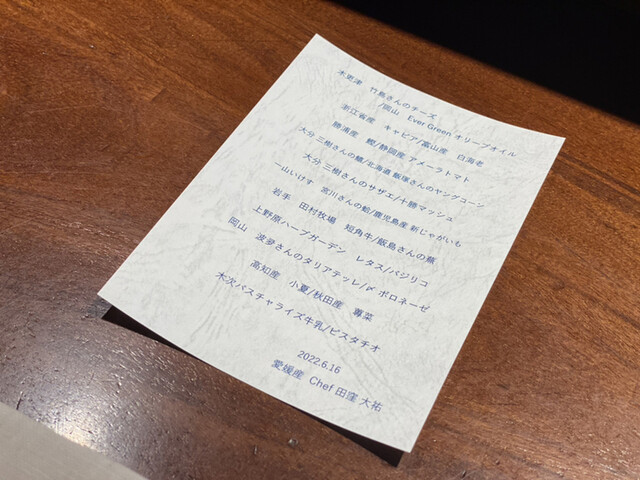 木更津 竹島さんのチーズ
/岡山 Ever Green オリーブオイル
浙江省産 キャビア/富山産 白海老
勝浦産 鰹/静岡産 アメーラトマト
大分 三樹さんの鱧/北海道 飯塚さんのヤングコーン
大分 三樹さんのサザエ/十勝マッシュ
一山いけす 宮川さんの鮎/鹿児島産 新じゃがいも
岩手 田村牧場 短角牛/飯島さんの蕪
上野原ハーブガーデン レタス/バジリコ
岡山 波夛さんのタリアテッレ/〆 ボロネーゼ
高知産 小夏/秋田産 蓴菜
木次パスチャライズ牛乳/ピスタチオ
2022.6.16
愛媛産 Chef 田窪 大祐